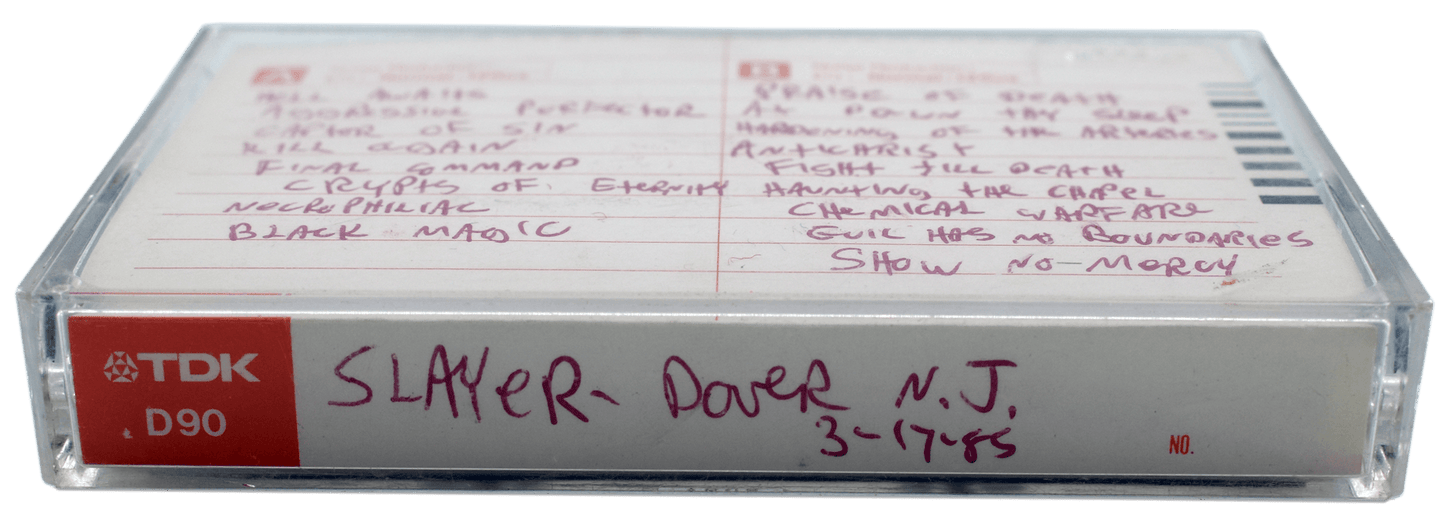 A
HELL AWAITS
AGGRESSIVE PERFECTOR
CAPTOR OF SIN
KILL AGAIN
FINAL COMMAND
CRYPTS OF ETERNITY
NECROPHILIAC
BLACK MAGIC
B
PRAISE OF DEATH
AT DAWN THEY SLEEP
HARDENING OF THE ARTERIES
ANTICHRIST
FIGHT TILL DEATH
HAUNTING THE CHAPEL
CHEMICAL WARFARE
EVIL HAS NO BOUNDARIES
SHOW NO-MERCY
TDK
D90
SLAYER- DOVER N.J.
3-17-85
NO.